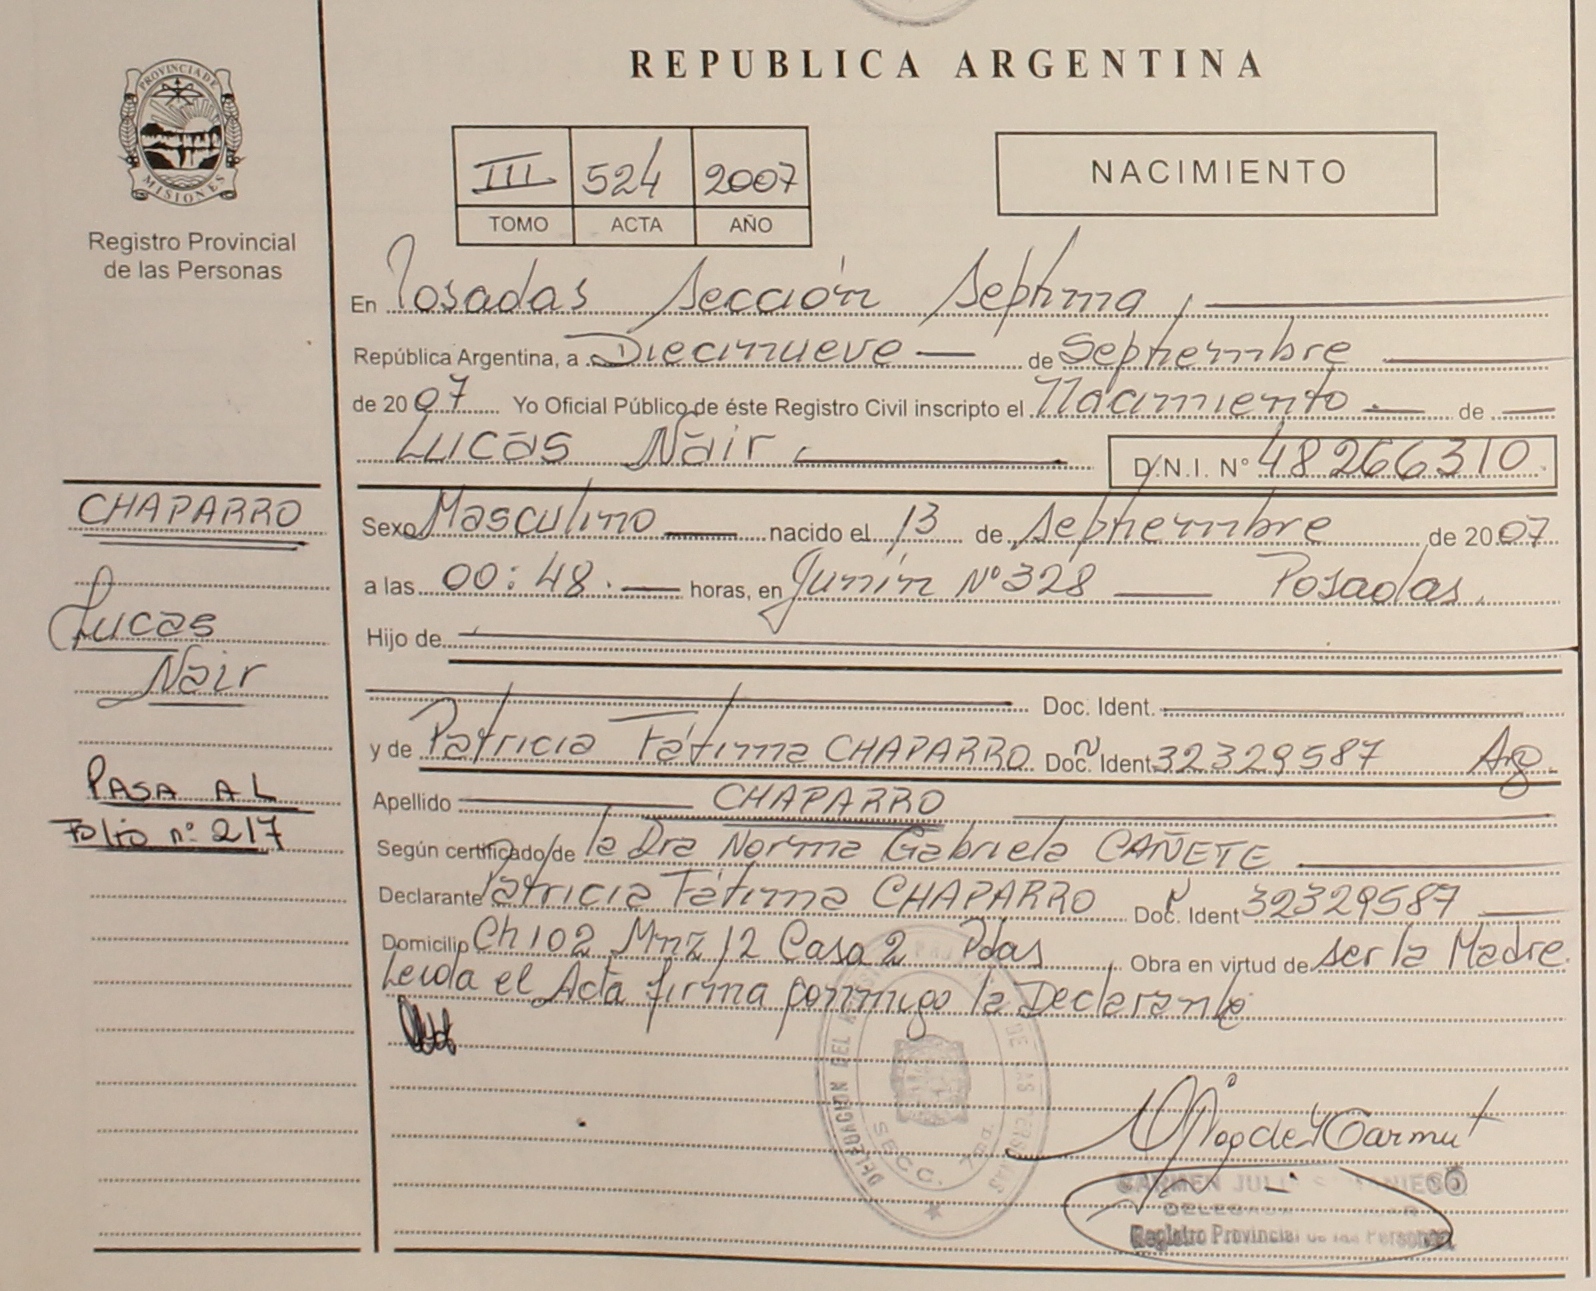 REPUBLICA ARGENTINA
PROVINCIA DE
MISIONES
Registro Provincial
de las Personas
III 524 2007
TOMO ACTA AÑO
NACIMIENTO
En Posadas Sección Septima
República Argentina, a Diecinueve de Septiembre
de 2007 Yo Oficial Público de éste Registro Civil inscripto el Nacimiento de
Lucas Nair D.N.I. N° 48266310
CHAPARRO
Lucas
Nair
PASA AL
Folio n° 217
Sexo Masculino nacido el 13 de Septiembre de 2007
a las 00:48 horas, en Junín N° 328 Posadas.
Hijo de
Doc. Ident.
y de Patricia Fátima CHAPARRO Doc. Ident 32329587 Arg.
Apellido CHAPARRO
Según certificado de la Dra Norma Gabriela CAÑETE
Declarante Patricia Fátima CHAPARRO Doc. Ident 32329587
Domicilio Ch 102 Mnz 12 Casa 2 Pdas Obra en virtud de ser la Madre.
Leida el Acta firma conmigo la Declarante
DELEGACION DEL DE LAS PERSONAS
SECC. 7ma.
CARMEN
Registro Provincial de las Personas